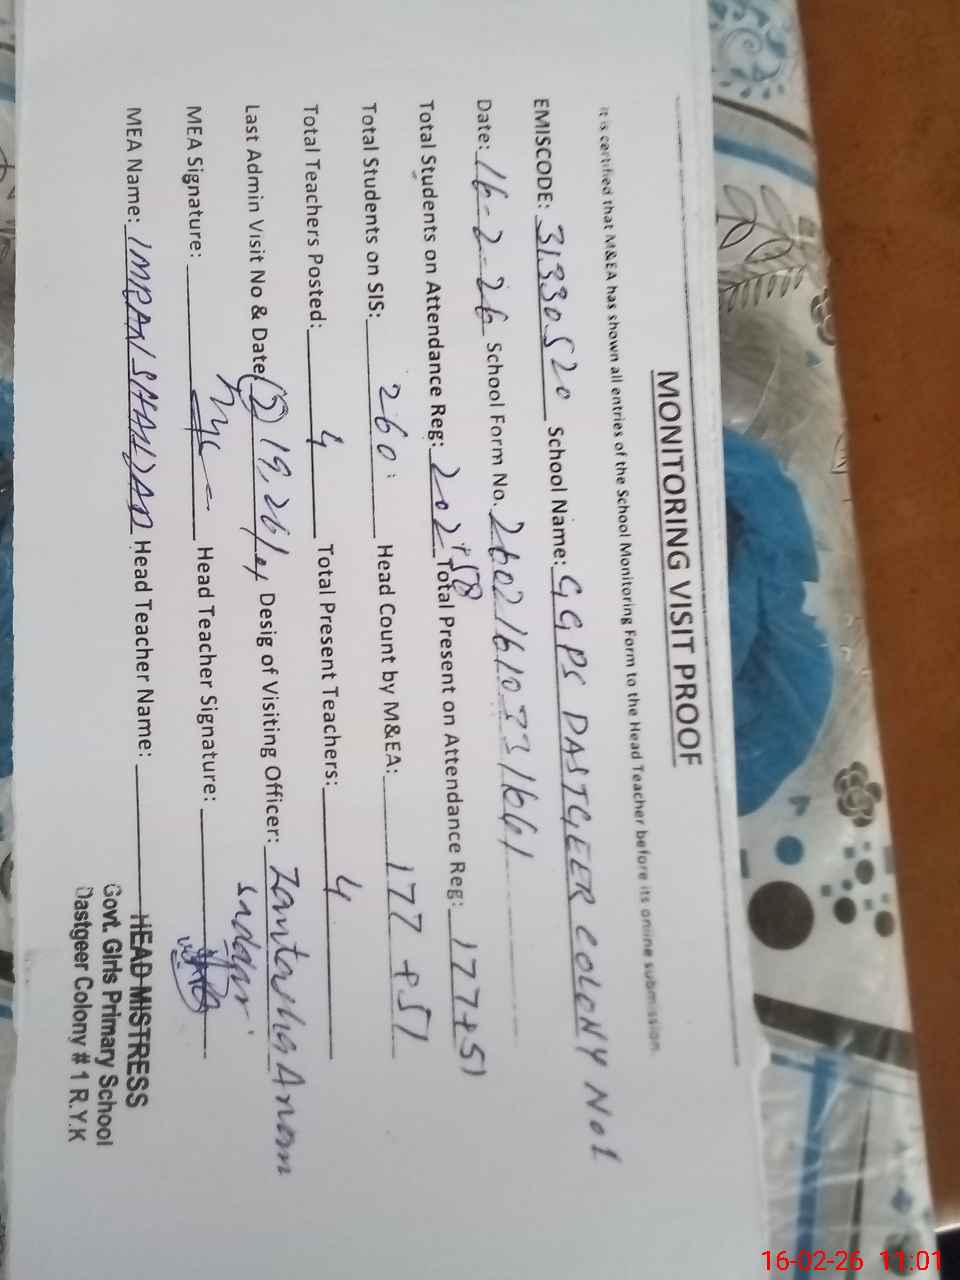 MONITORING VISIT PROOF
It is certified that M&EA has shown all entries of the School Monitoring Form to the Head Teacher before its online submission.
EMISCODE: 31330520 School Name: GGPS DASTGEER COLONY No1
Date: 16-2-26 School Form No. 26021610331661
Total Students on Attendance Reg: 202+58 Total Present on Attendance Reg: 177+51
Total Students on SIS: 260 Head Count by M&EA: 177+51
Total Teachers Posted: 4 Total Present Teachers: 4
Last Admin Visit No & Date (5) 19, 26/01 Desig of Visiting Officer:
MEA Signature: Head Teacher Signature:
MEA Name: IMRAN SHAHZAD Head Teacher Name:
HEAD MISTRESS
Govt. Girls Primary School
Dastgeer Colony # 1 R.Y.K
16-02-26 11:01